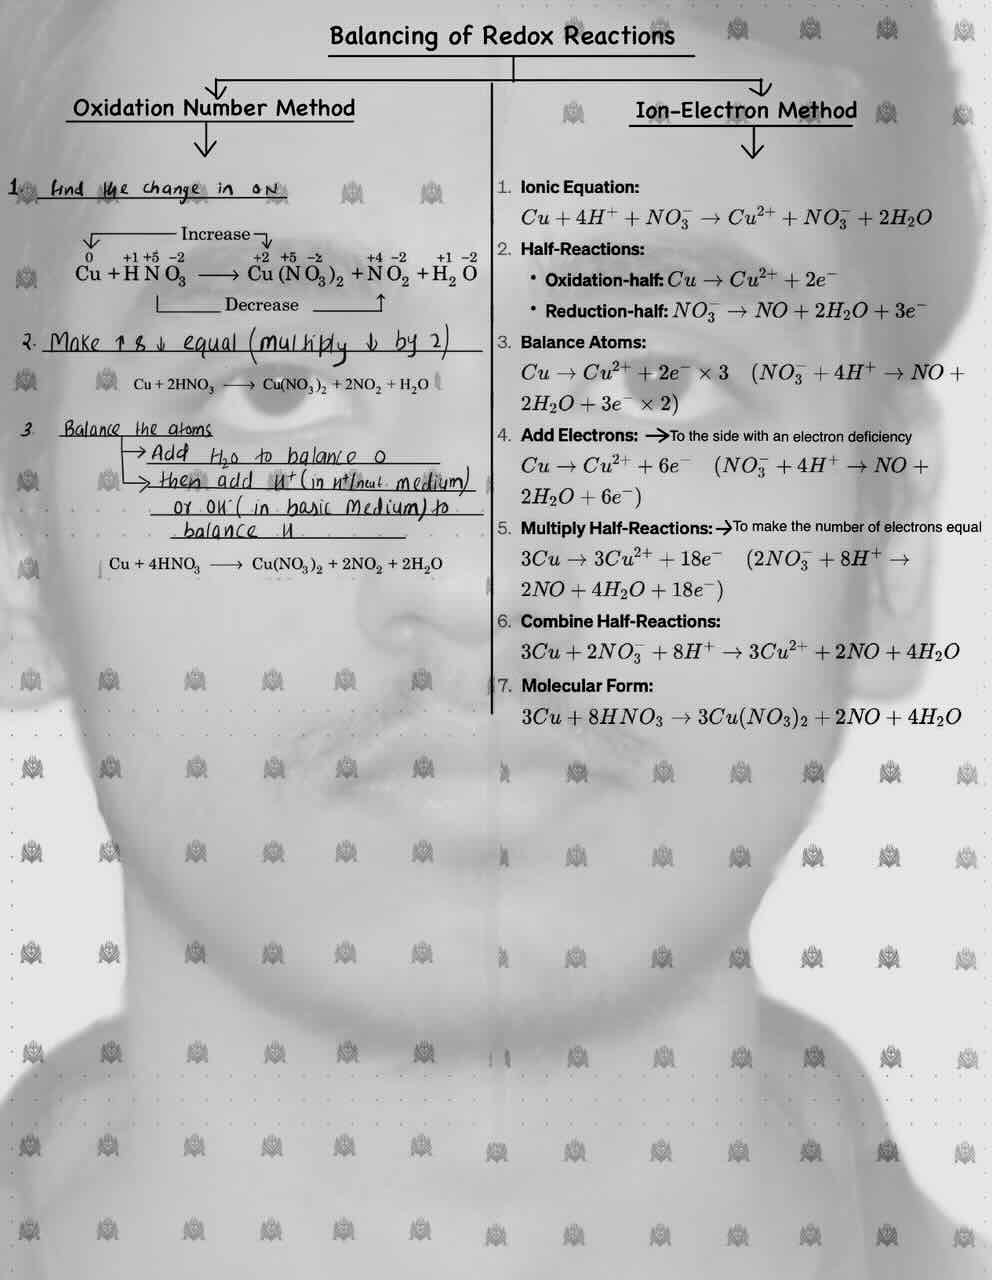 Balancing of Redox Reactions
Oxidation Number Method
1. find the change in ON
Increase
0 +1 +5 −2 +2 +5 −2 +4 −2 +1 −2
Cu + H N O₃ ⟶ Cu (N O₃)₂ + N O₂ + H₂ O
Decrease
2. Make ↑ & ↓ equal (multiply ↓ by 2)
Cu + 2HNO₃ ⟶ Cu(NO₃)₂ + 2NO₂ + H₂O
3. Balance the atoms
→ Add H₂O to balance O
→ then add H⁺ (in H⁺/neut. medium)
or OH⁻ (in basic medium) to
balance H
Cu + 4HNO₃ ⟶ Cu(NO₃)₂ + 2NO₂ + 2H₂O
Ion-Electron Method
1. Ionic Equation:
Cu + 4H⁺ + NO₃⁻ → Cu²⁺ + NO₃⁻ + 2H₂O
2. Half-Reactions:
• Oxidation-half: Cu → Cu²⁺ + 2e⁻
• Reduction-half: NO₃⁻ → NO + 2H₂O + 3e⁻
3. Balance Atoms:
Cu → Cu²⁺ + 2e⁻ × 3 (NO₃⁻ + 4H⁺ → NO +
2H₂O + 3e⁻ × 2)
4. Add Electrons: →To the side with an electron deficiency
Cu → Cu²⁺ + 6e⁻ (NO₃⁻ + 4H⁺ → NO +
2H₂O + 6e⁻)
5. Multiply Half-Reactions: →To make the number of electrons equal
3Cu → 3Cu²⁺ + 18e⁻ (2NO₃⁻ + 8H⁺ →
2NO + 4H₂O + 18e⁻)
6. Combine Half-Reactions:
3Cu + 2NO₃⁻ + 8H⁺ → 3Cu²⁺ + 2NO + 4H₂O
7. Molecular Form:
3Cu + 8HNO₃ → 3Cu(NO₃)₂ + 2NO + 4H₂O